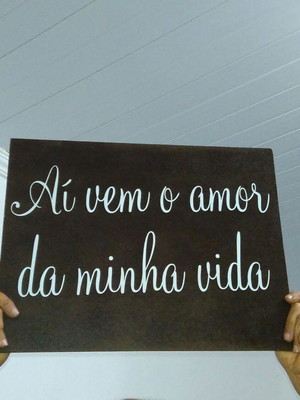 Aí vem o amor
da minha vida